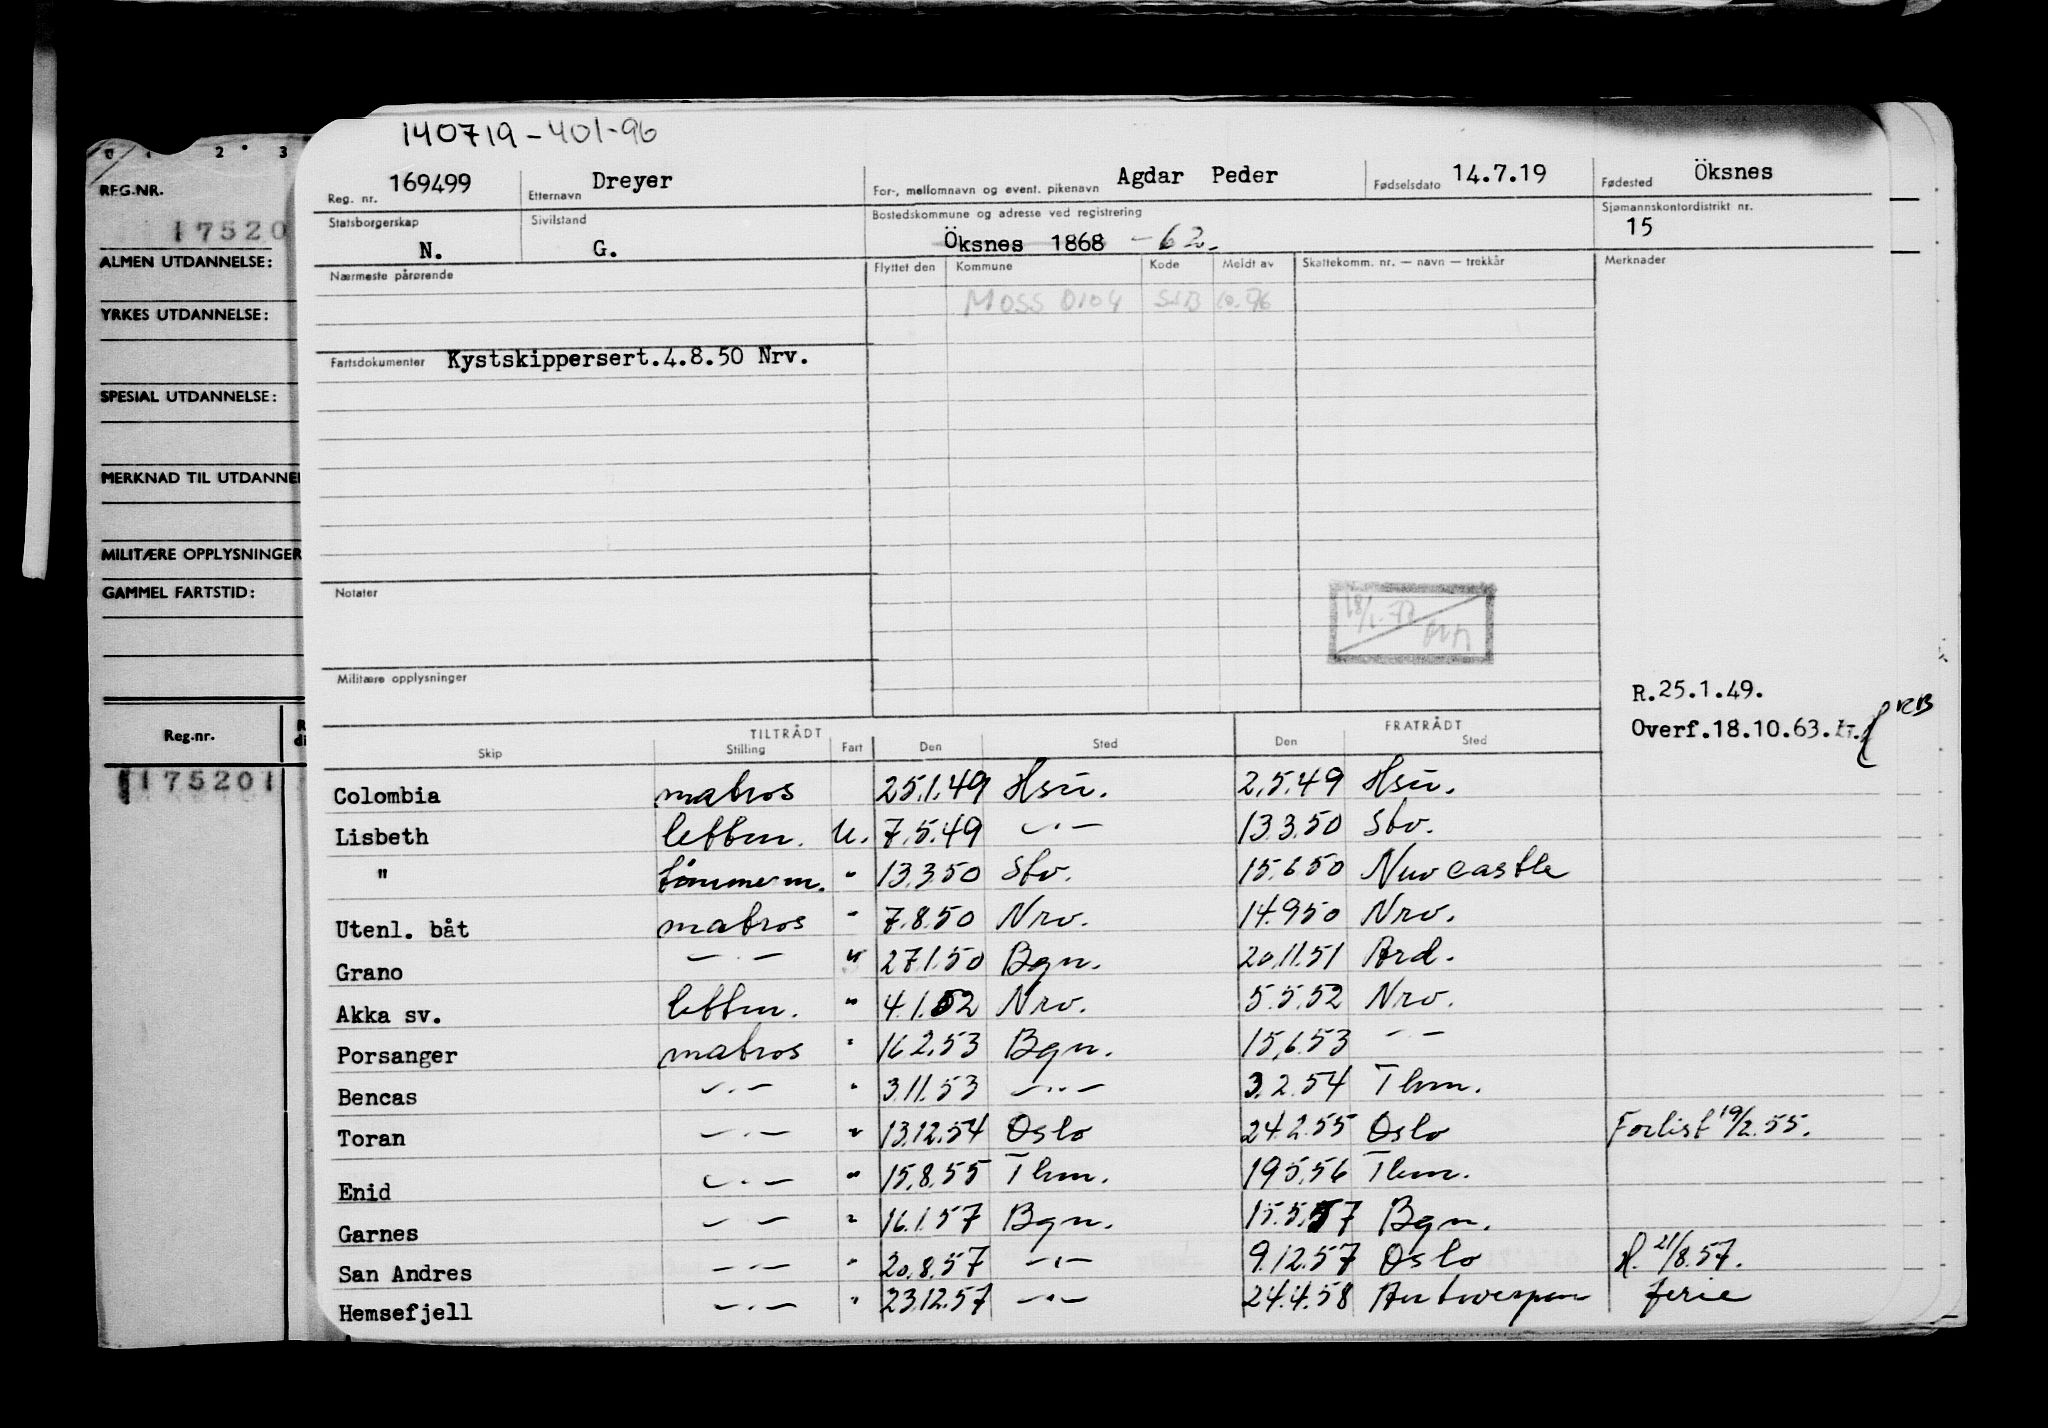 140719-401-96
0 1 2 3
REG.NR.
17520
ALMEN UTDANNELSE:
YRKES UTDANNELSE:
SPESIAL UTDANNELSE:
MERKNAD TIL UTDANNE
MILITÆRE OPPLYSNINGER
GAMMEL FARTSTID:
Reg.nr.
175201
Reg. nr. 169499 Etternavn Dreyer For-, mellomnavn og event. pikenavn Agdar Peder Fødselsdato 14.7.19 Fødested Öksnes
Statsborgerskap N. Sivilstand G. Bostedskommune og adresse ved registrering Öksnes 1868 -62. Sjømannskontordistrikt nr. 15
Nærmeste pårørende Flyttet den Kommune Kode Meldt av Skattekomm. nr. — navn — trekkår Merknader
MOSS 0104 SdB 10.76
Fartsdokumenter Kystskippersert.4.8.50 Nrv.
Notater
Militære opplysninger
R.25.1.49.
Overf.18.10.63.
TILTRÅDT FRATRÅDT
Skip Stilling Fart Den Sted Den Sted
Colombia matros 25.1.49 Hsu. 2.5.49 Hsu.
Lisbeth lettm. U. 7.5.49 -"- 13.3.50 Stv.
" tømmerm. " 13.3.50 Stv. 15.6.50 Newcastle
Utenl. båt matros " 7.8.50 Nrv. 14.9.50 Nrv.
Grano -"- " 27.1.50 Bgn. 20.11.51 Ard.
Akka sv. lettm. " 4.1.52 Nrv. 5.5.52 Nrv.
Porsanger matros " 16.2.53 Bgn. 15.6.53 -"-
Bencas -"- " 3.11.53 -"- 3.2.54 Thm.
Toran -"- " 13.12.54 Oslo 24.2.55 Oslo Forlist 19/2.55.
Enid -"- " 15.8.55 Thm. 19.5.56 Thm.
Garnes -"- " 16.1.57 Bgn. 15.5.57 Bgn.
San Andres -"- " 20.8.57 -"- 9.12.57 Oslo H. 21/8.57.
Hemsefjell -"- " 23.12.57 -"- 24.4.58 Antwerpen ferie